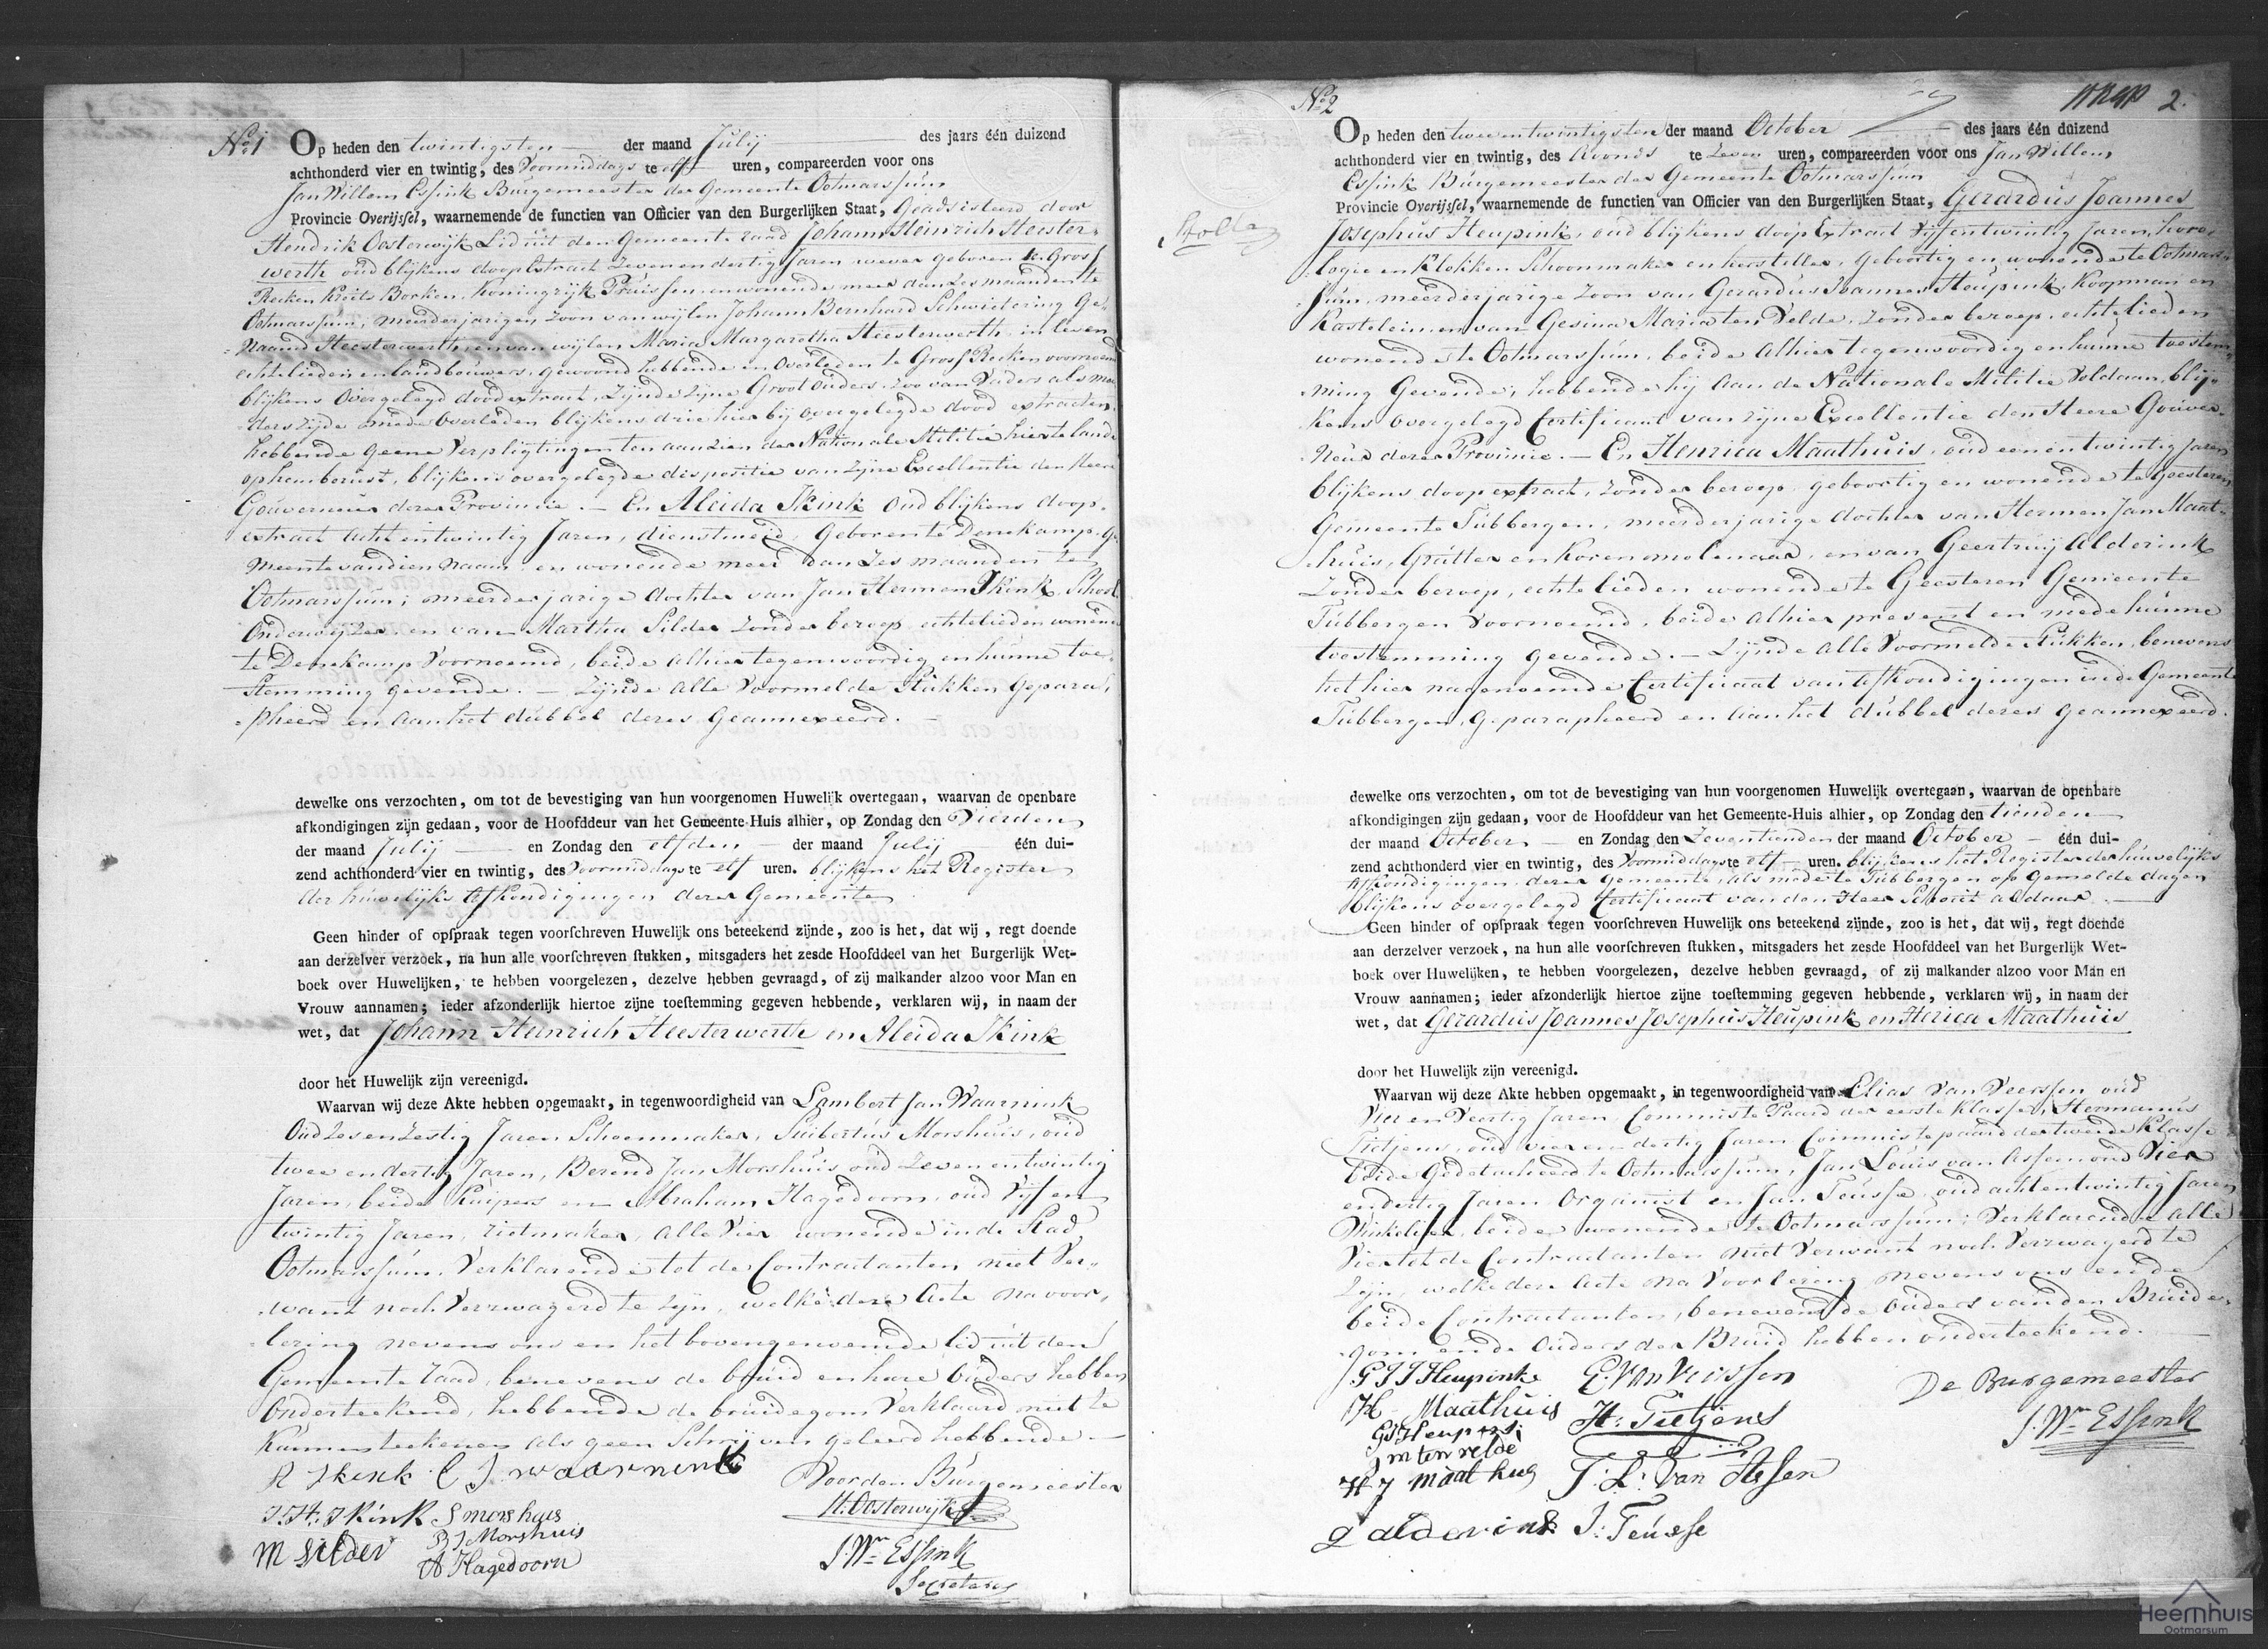 No 1
Op heden den twintigsten der maand Julij des jaars één duizend
achthonderd vier en twintig, des Voormiddags te elf uren, compareerden voor ons
Jan Willem Essink Burgemeester der Gemeente Ootmarssum
Provincie Overijssel, waarnemende de functien van Officier van den Burgerlijken Staat, Geadsisteerd door
Hendrik Oosterwijk Lid uit den Gemeente raad Johann Heinrich Heester-
werth oud blijkens doop Extract zeven en dertig Jaren wever geboren te Gross
Recken Kreits Borken, Koningrijk Pruissen, en wonende meer dan zes maanden te
Ootmarssum, meerderjarigen zoon van wijlen Johann Bernhard Schwidering Ge-
naamd Heesterwerth, en van wijlen Maria Margaretha Heesterwerth in leven
echtelieden en landbouwers, gewoond hebbende en overleden te Gross Recken voornoemd
blijkens overgelegd dood extract, zijnde zijne Grootouders, zoo van Vaders als moe-
derszijde mede overleden blijkens drie hier bij overgelegde dood extracten
hebbende geene Verpligtingen ten aanzien der Nationale Militie hier te lande
op hem berust, blijkens overgelegde dispositie van zijne Excellentie den Heere
Gouverneur dezer Provincie. — En Aleida Ikink oud blijkens doop-
extract acht en twintig Jaren, dienstmeid, geboren te Denekamp, Ge-
meente van dien naam en wonende meer dan zes maanden te
Ootmarssum; meerderjarige dochter van Jan Hermen Ikink, School
Onderwijzer, en van Martha Silder zonder beroep, echtelieden wonende
te Denekamp voornoemd, beide alhier tegenwoordig en hunne toe-
stemming gevende. — Zijnde alle voormelde stukken Gepara-
pheerd en aan het dubbel dezes geannexeerd. —
dewelke ons verzochten, om tot de bevestiging van hun voorgenomen Huwelijk overtegaan, waarvan de openbare
afkondigingen zijn gedaan, voor de Hoofddeur van het Gemeente-Huis alhier, op Zondag den Vierden
der maand Julij en Zondag den elfden der maand Julij één dui-
zend achthonderd vier en twintig, des Voormiddags te elf uren. blijkens het Register
der huwelijks afkondigingen dezer Gemeente
Geen hinder of opspraak tegen voorschreven Huwelijk ons beteekend zijnde, zoo is het, dat wij, regt doende
aan derzelver verzoek, na hun alle voorschreven stukken, mitsgaders het zesde Hoofddeel van het Burgerlijk Wet-
boek over Huwelijken, te hebben voorgelezen, dezelve hebben gevraagd, of zij malkander alzoo voor Man en
Vrouw aannamen; ieder afzonderlijk hiertoe zijne toestemming gegeven hebbende, verklaren wij, in naam der
wet, dat Johann Heinrich Heesterwerth en Aleida Ikink
door het Huwelijk zijn vereenigd.
Waarvan wij deze Akte hebben opgemaakt, in tegenwoordigheid van Lambert Jan Waarnink
Oud zes en zestig Jaren Schoenmaker, Suibertus Morshuis, oud
twee en dertig Jaren, Berend Jan Morshuis oud zeven en twintig
Jaren, beide Kuipers en Abraham Hagedoorn, oud Vijf en
twintig Jaren, rietmaker, alle Vier wonende in de Stad
Ootmarssum, Verklarende tot de Contractanten niet Ver-
want noch Verzwagerd te zijn, welke deze Acte na voor-
lezing nevens ons en het bovengenoemde lid uit den
Gemeente raad, benevens de bruid en hare Ouders hebben
Onderteekend, hebbende de bruidegom Verklaard niet te
Kunnen teekenen als geen Schrijven geleerd hebbende. —
A Ikink L J waarnink
J. H. Ikink S morshuis
M silder B J Morshuis
A Hagedoorn
Voor den Burgemeester
H. Oosterwijk
J. Wm Essink
Secretaris
No 2
2.
Stolle
Op heden den twee en twintigsten der maand October des jaars één duizend
achthonderd vier en twintig, des Avonds te zeven uren, compareerden voor ons Jan Willem
Essink Burgemeester der Gemeente Ootmarssum
Provincie Overijssel, waarnemende de functien van Officier van den Burgerlijken Staat, Gerardus Joannes
Josephus Heupink, oud blijkens doop Extract Vijf en twintig Jaren, horo-
logie en Klokken Schoonmaker en hersteller, geboortig en wonende te Ootmars-
sum, meerderjarige zoon van Gerardus Joannes Heupink, Koopman en
Kastelein, en van Gesina Maria ten Velde, zonder beroep, echtelieden
wonende te Ootmarssum, beide alhier tegenwoordig en hunne toestem-
ming Gevende, hebbende hij aan de Nationale Militie Voldaan, blij-
kens overgelegd Certificaat van zijne Excellentie den Heere Gouver-
neur dezer Provincie. — En Henrica Maathuis, oud een en twintig Jaren
blijkens doop extract, zonder beroep, geboortig en wonende te Geesteren
Gemeente Tubbergen, meerderjarige dochter van Hermen Jan Maat-
huis, Grutter en Korenmolenaar, en van Geertruij Alderink
zonder beroep, echtelieden wonende te Geesteren Gemeente
Tubbergen voornoemd, beide alhier present en mede hunne
toestemming gevende. — Zijnde alle Voormelde Stukken, benevens
het hier nagenoemde Certificaat van afkondigingen in de Gemeente
Tubbergen, geparapheerd en aan het dubbel dezes geannexeerd.
dewelke ons verzochten, om tot de bevestiging van hun voorgenomen Huwelijk overtegaan, waarvan de openbare
afkondigingen zijn gedaan, voor de Hoofddeur van het Gemeente-Huis alhier, op Zondag den tienden
der maand October en Zondag den Zeventienden der maand October één dui-
zend achthonderd vier en twintig, des Voormiddags te elf uren. blijkens het Register der huwelijks
Afkondigingen dezer Gemeente, als mede te Tubbergen op gemelde dagen
blijkens overgelegd Certificaat van den Heer Schout aldaar. —
Geen hinder of opspraak tegen voorschreven Huwelijk ons beteekend zijnde, zoo is het, dat wij, regt doende
aan derzelver verzoek, na hun alle voorschreven stukken, mitsgaders het zesde Hoofddeel van het Burgerlijk Wet-
boek over Huwelijken, te hebben voorgelezen, dezelve hebben gevraagd, of zij malkander alzoo voor Man en
Vrouw aannamen; ieder afzonderlijk hiertoe zijne toestemming gegeven hebbende, verklaren wij, in naam der
wet, dat Gerardus Joannes Josephus Heupink en Herica Maathuis
door het Huwelijk zijn vereenigd.
Waarvan wij deze Akte hebben opgemaakt, in tegenwoordigheid van Elias Van Veerssen oud
Vier en Veertig Jaren, Commis te Paard der eerste Klasse, Hermanus
Tietjens, oud vier en dertig Jaren Commis te paard der tweede Klasse
beide Gedetacheerd te Ootmarssum, Jan Louis van Assen oud Vier
en dertig Jaren Organist en Jan Teusse, oud acht en twintig Jaren
Winkelier, beide wonende te Ootmarssum; Verklarende alle
Vier tot de Contractanten niet Verwant noch Verzwagerd te
Zijn, welke deze Acte na Voorlezing nevens ons en de
beide Contractanten, benevens de Ouders van den Bruide-
gom en de Ouders der Bruid hebben onderteekend. —
G J J Heupink E. Van Veerssen
H. Maathuis H. Tietjens
GJ Heupink
G m ten velde
H J maathus J. L. Van Assen
g alderink J. Teusse
De Burgemeester
J. Wm Essink
Heemhuis
Ootmarsum